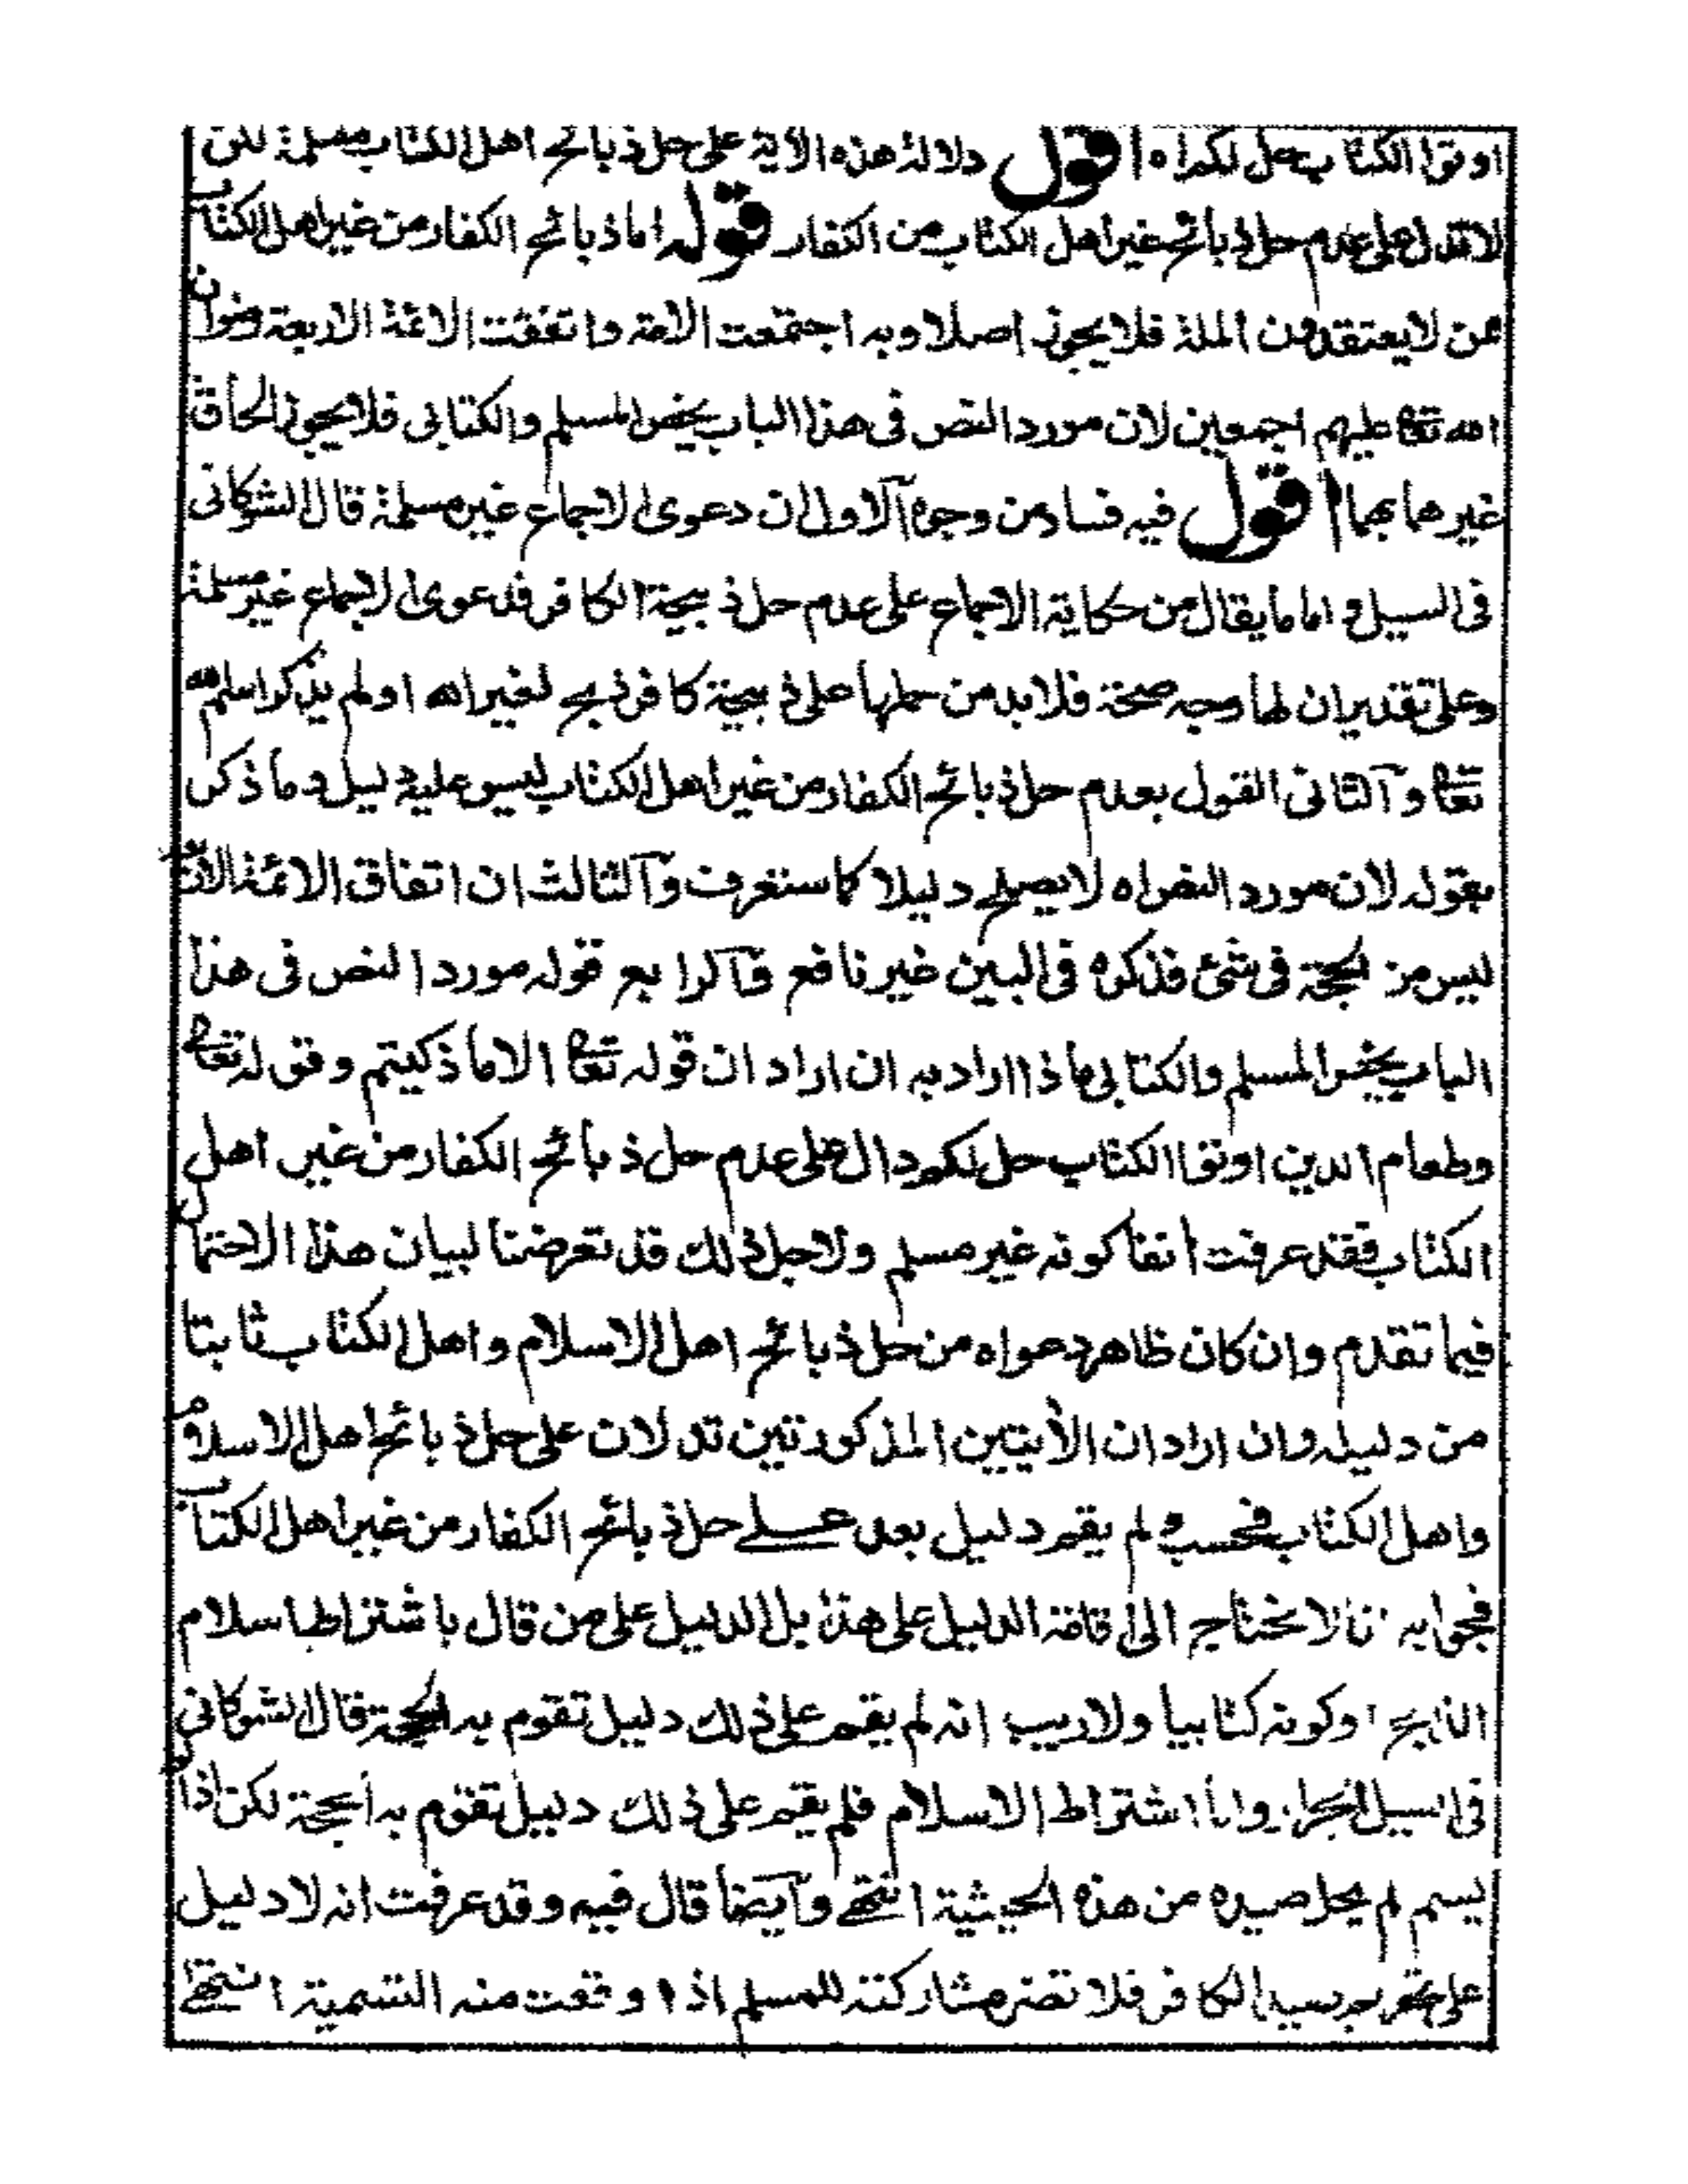 اوتوا الكتاب حل لكم اه اقول دلالة هذه الآية على حل ذبائح اهل الكتاب مسلمة لكن
لا تدل على عدم حل ذبائح غير اهل الكتاب من الكفار قوله اما ذبائح الكفار من غير اهل الكتاب
ممن لا يعتقدون الملة فلا يجوز اصلا وبه اجتمعت الامة واتفقت الائمة الاربعة رضوان
الله تعا عليهم اجمعين لان مورد النص فى هذا الباب يخص المسلم والكتابى فلا يجوز الحاق
غيرهما بهما اقول فيه فساد من وجوه الاول ان دعوى الاجماع غير مسلمة قال الشوكانى
فى السيل واما ما يقال من حكاية الاجماع على عدم حل ذبيحة الكافر فدعوى الاجماع غير مسلمة
وعلى تقدير ان لها وجه صحة فلا بد من حملها على ذبيحة كافر ذبح لغير الله او لم يذكر اسم الله
تعا والثانى القول بعدم حل ذبائح الكفار من غير اهل الكتاب ليس عليه دليل وما ذكر
بقوله لان مورد النص اه لا يصلح دليلا كما ستعرف والثالث ان اتفاق الائمة الاربعة
ليس من الحجة فى شئ فذكره فى البين غير نافع والرابع قوله مورد النص فى هذا
الباب يخص المسلم والكتابى ماذا اراد به ان اراد ان قوله تعا الا ما ذكيتم وقوله تعالى
وطعام الذين اوتوا الكتاب حل لكم دال على عدم حل ذبائح الكفار من غير اهل
الكتاب فقد عرفت انفا كونه غير مسلم ولاجل ذلك قد تعرضنا لبيان هذا الاحتمال
فيما تقدم وان كان ظاهر دعواه من حل ذبائح اهل الاسلام واهل الكتاب ثابتا
من دليله وان اراد ان الأيتين المذكورتين تدلان على حل ذبائح اهل الاسلام
واهل الكتاب فحسب ولم يقم دليل بعد على حل ذبائح الكفار من غير اهل الكتاب
فجوابه انا لا نحتاج الى اقامة الدليل على هذا بل الدليل على من قال باشتراط اسلام
الذابح او كونه كتابيا ولا ريب انه لم يقم على ذلك دليل تقوم به الحجة قال الشوكانى
فى السيل الجرار واما اشتراط الاسلام فلم يقم على ذلك دليل تقوم به الحجة لكن اذا لم
يسم لم يحل صيده من هذه الحيثية انتهى وايضا قال فيه وقد عرفت انه لا دليل
على تحريم صيد الكافر فلا تضر مشاركته للمسلم اذا وقعت منه التسمية انتهى